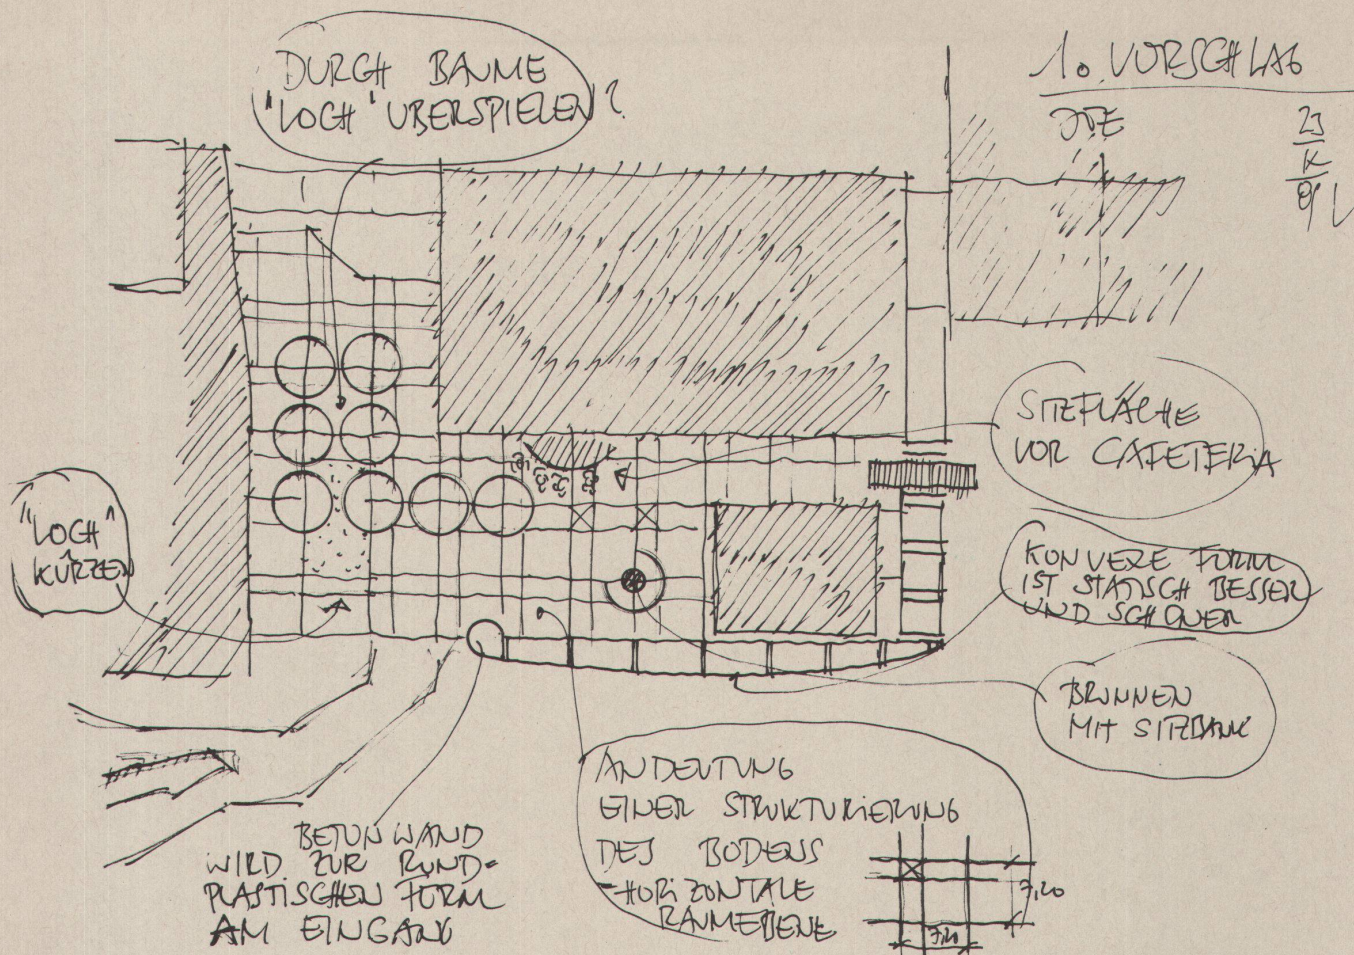 DURCH BÄUME
"LOCH" ÜBERSPIELEN?
1. VORSCHLAG
SITZFLÄCHE
VOR CAFETERIA
"LOCH"
KÜRZEN
KONVEXE FORM
IST STATISCH BESSER
UND SCHÖNER
BRUNNEN
MIT SITZBANK
ANDEUTUNG
EINER STRUKTURIERUNG
DES BODENS
-HORIZONTALE
RAUMEBENE
7,20
7,20
BETONWAND
WIRD ZUR RUND-
PLASTISCHEN FORM
AM EINGANG